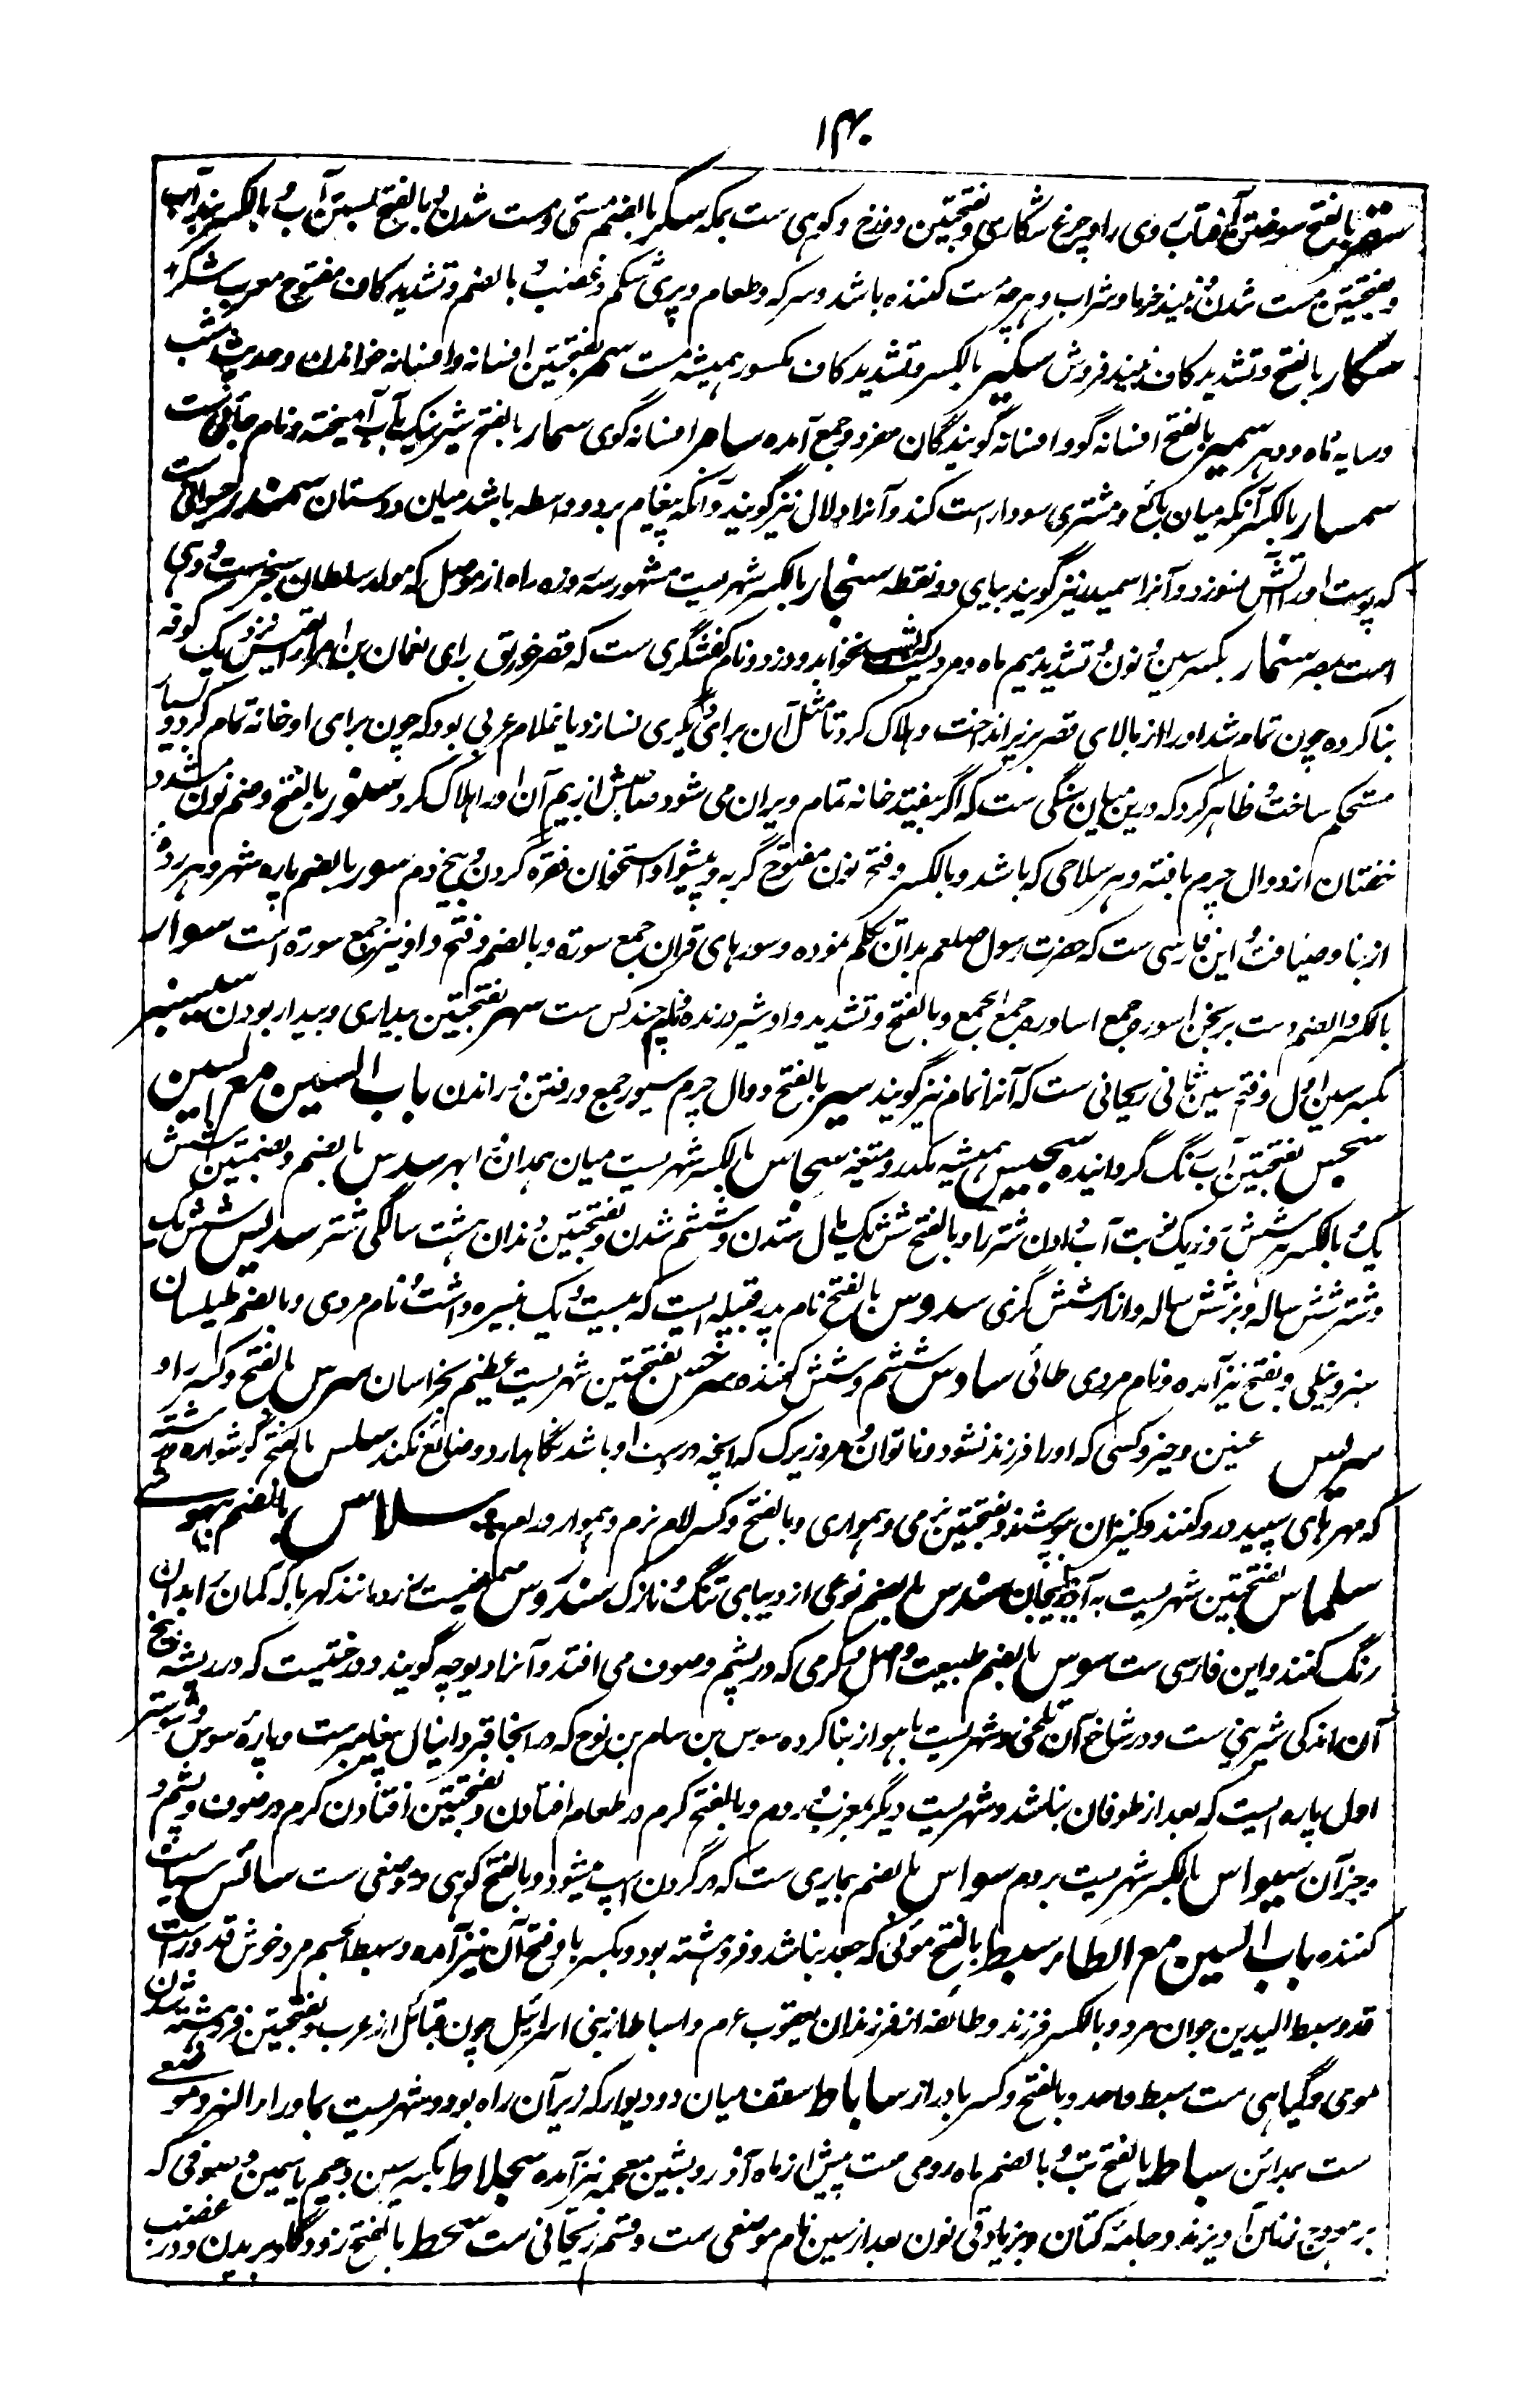 ۱۴۰
سقر بالفتح سوختن آفتاب روی را و چرغ شکاری و بفتحتین دوزخ و کوهی ست بمکه سکر بالضم مستی و مست شدن و بالفتح بستن آب و بالکسر بند آب
و بفتحتین مست شدن و نبیذ خرما و شراب و هر چه مست کننده باشد و سرکه و طعام و پری شکم و غضب و بالضم و تشدید کاف مفتوح معرب شکر
سکار بالفتح و تشدید کاف نبیذ فروش سکیر بالکسر و تشدید کاف مکسور همیشه مست سمر بفتحتین افسانه و افسانه خواندن و حدیث شب
و سایه ماه و دهر سمیر بالفتح افسانه گو و افسانه گویندگان مفرد و جمع آمده سامر افسانه گوی سمار بالفتح شیر نیک بآب آمیخته و نام جائی ست
سمسار بالکسر آنکه میان بائع و مشتری سودا راست کند و آنرا دلال نیز گویند و آنکه پیغام برد و واسطه باشد میان دوستان سمندر حیوانی ست
که پوست او در آتش نسوزد و آنرا سمیدر نیز گویند بیای دو نقطه سنجار بالکسر شهریست مشهور سه روزه راه از موصل که مولد سلطان سنجرست و دهی
است بمصر سنمار بکسر سین و نون و تشدید میم ماه و مردیکه شب نخوابد و دزد و نام کفشگری ست که قصر خورنق برای نعمان بن امرأ القیس نزدیک کوفه
بنا کرده چون تمام شد او را از بالای قصر بزیر انداخت و هلاک کرد تا مثل آن برای دیگری نسازد یا غلام عربی بود که چون برای او خانه تمام کرد و بسیار
مستحکم ساخت و ظاهر کرد که درین میان سنگی ست که اگر بیفتد خانه تمام ویران می شود صاحبش از بیم آن او را هلاک کرد سنور بالفتح و ضم نون مشدد
خفتان از دوال چرم بافته و هر سلاحی که باشد و بالکسر و فتح نون مفتوح گربه و پیشوا و استخوان فقره گردن و بیخ دم سور بالضم باره شهر و هر رده
از بنا و ضیافت و این فارسی ست که حضرت رسول صلعم بدان تکلم نموده و سورهای قرآن جمع سوره و بالضم و فتح واو نیز جمع سوره است سوار
بالکسر و الضم دست برنجن اسوره جمع اساوره جمع الجمع و بالفتح و تشدید واو شیر درنده و نام چند کس ست سهر بفتحتین بیداری و بیدار بودن سیسنبر
بکسر سین اول و فتح سین ثانی ریحانی ست که آنرا نمام نیز گویند سیر بالفتح دوال چرم سیور جمع و رفتن و راندن باب السین مع السین
سجس بفتحتین آب رنگ گردانیده سجیس همیشه مکدر و متغیر سجاس بالکسر شهریست میان همدان و ابهر سدس بالضم و بضمتین شش
یک و بالکسر هر شش روز یک نوبت آب دادن شتر را و بالفتح شش یک مال ستدن و ششم شدن و بفتحتین دندان هشت سالگی شتر سدیس شش یک
و شتر شش ساله و بز شش ساله و ازار شش گزی سدوس بالفتح نام پدر قبیله ایست که بیست و یک نبیره داشت و نام مردی و بالضم طیلسان
سبز و نیلی و بفتح نیز آمده و نام مردی طائی سادس ششم و شش کننده سرخس بفتحتین شهریست عظیم بخراسان سرس بالفتح و کسر را و
سریس عنین و حیز و کسی که او را فرزند نشود و ناتوان و مرد زیرک که آنچه در دست او باشد نگاهدارد و ضائع نکند سلس بالفتح گوشواره و رشته
که مهرهای سپید درو کنند و کنیزان پوشند و بفتحتین نرمی و همواری و بالفتح و کسر لام نرم و هموار و رام سلاس بالضم بیهوشی
سلماس بفتحتین شهریست به آذربیجان سندس بالضم نوعی از دیبای تنگ و نازک سندروس صمغیست زرد مانند کهربا که کمان را بدان
رنگ کنند و این فارسی ست سوس بالضم طبیعت و اصل و کرمی که در پشم و صوف می افتد و آنرا دیوچه گویند و درختیست که در ریشه و بیخ
آن اندکی شیرینی ست و در شاخ آن تلخی و شهریست باهواز بنا کرده سوس بن سام بن نوح که در آنجا قبر دانیال پیغامبرست و باره سوس و شوستر
اول باره ایست که بعد از طوفان بنا شد و شهریست دیگر بمغرب و روم و بالفتح کرم در طعام افتادن و بفتحتین افتادن کرم در صوف و پشم و
و جز آن سیواس بالکسر شهریست بروم سواس بالضم بیماری ست که در گردن اسپ میشود و بالفتح کوهی و موضعی ست سائس سیاست
کننده باب السین مع الطاء سبط بالفتح موئی که جعد نباشد و فروهشته بود و بکسر با و فتح آن نیز آمده و سبط الجسم مرد خوش قد و راست
قد و سبط الیدین جوان مرد و بالکسر فرزند و طائفه از فرزندان یعقوب عم و اسباط از بنی اسرائیل چون قبائل از عرب و بفتحتین فروهشته شدن
موی و گیاهی ست سبط واحد و بالفتح و کسر با دراز ساباط سقف میان دو دیوار که زیر آن راه بود و شهریست بماوراء النهر و موضعی
ست بمدائن سباط بالفتح تب و بالضم ماه رومی ست پیش از ماه آذر و بشین معجمه نیز آمده سجلاط بکسر سین و جیم یاسمین و صوفی که
بر هودج زنان آویزند و جامه کتان و بزیادتی نون بعد از سین نام موضعی ست و قسم ریحانی ست سحط بالفتح زود گلو بریدن و در غضب